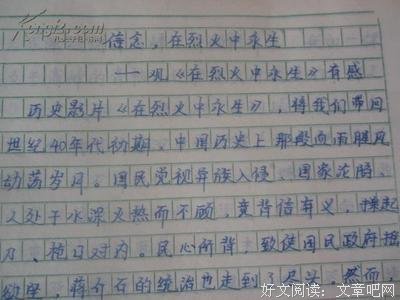 信念，在烈火中永生
——观《在烈火中永生》有感
历史影片《在烈火中永生》，将我们带回
世纪40年代初期，中国历史上那段血雨腥风
动荡岁月。国民党视异族入侵、国家沦陷、
人处于水深火热而不顾，竟背信弃义，操起
刀、枪口对内。民心所背，致使国民政府摇
欲坠，蒋介石的统治也走到了尽头。然而，
好文阅读：文章吧网